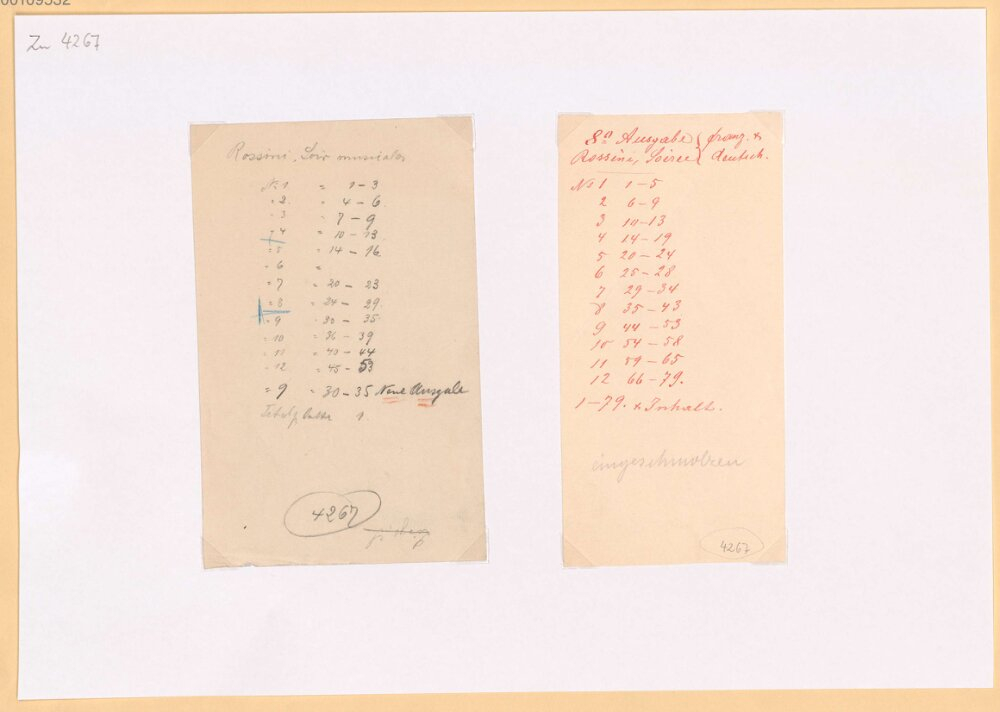 Zu 4267
Rossini, Soir musicales
No 1 = 1-3
" 2 = 4-6
" 3 = 7-9
" 4 = 10-13
" 5 = 14-16
" 6 =
" 7 = 20-23
" 8 = 24-29.
" 9 = 30-35
" 10 = 36-39
" 11 = 40-44
" 12 = 45-53
= 9 = 30-35 Neue Ausgabe
Titelplatte 1
4267
8o Ausgabe franz. &
Rossini, Soiree deutsch.
No 1 1-5
2 6-9
3 10-13
4 14-19
5 20-24
6 25-28
7 29-34
8 35-43
9 44-53
10 54-58
11 59-65
12 66-79.
1-79. & Inhalt.
eingeschmolzen
4267